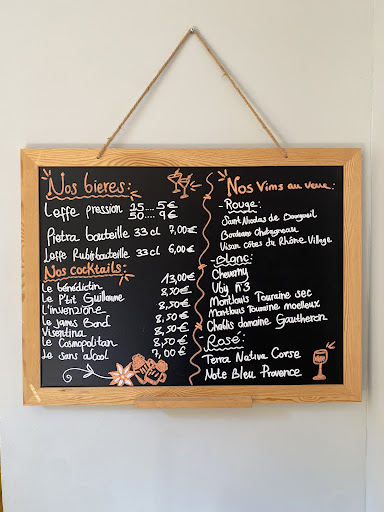 Nos bieres:
Leffe pression 25.... 5€
50.... 9€
Pietra bouteille 33 cl 7,00€
Leffe Ruby bouteille 33 cl 6,00€
Nos cocktails:
Le bénédictin 13,00€
Le P'tit Guillaume 8,50€
L'invenzione 8,50€
Le james Bond 8,50€
Visentina 8,50€
Le Cosmopolitan 8,50€
Le sans alcool 7,00€
Nos Vins au verre:
- Rouge:
Saint Nicolas de Bourgueil
Bordeaux
Visan Côtes du Rhône Village
- Blanc:
Cheverny
Uby n°3
Montlouis Touraine sec
Montlouis Touraine moelleux
Chablis domaine Gautheron
- Rosé:
Terra Nativa Corse
Note Bleu Provence